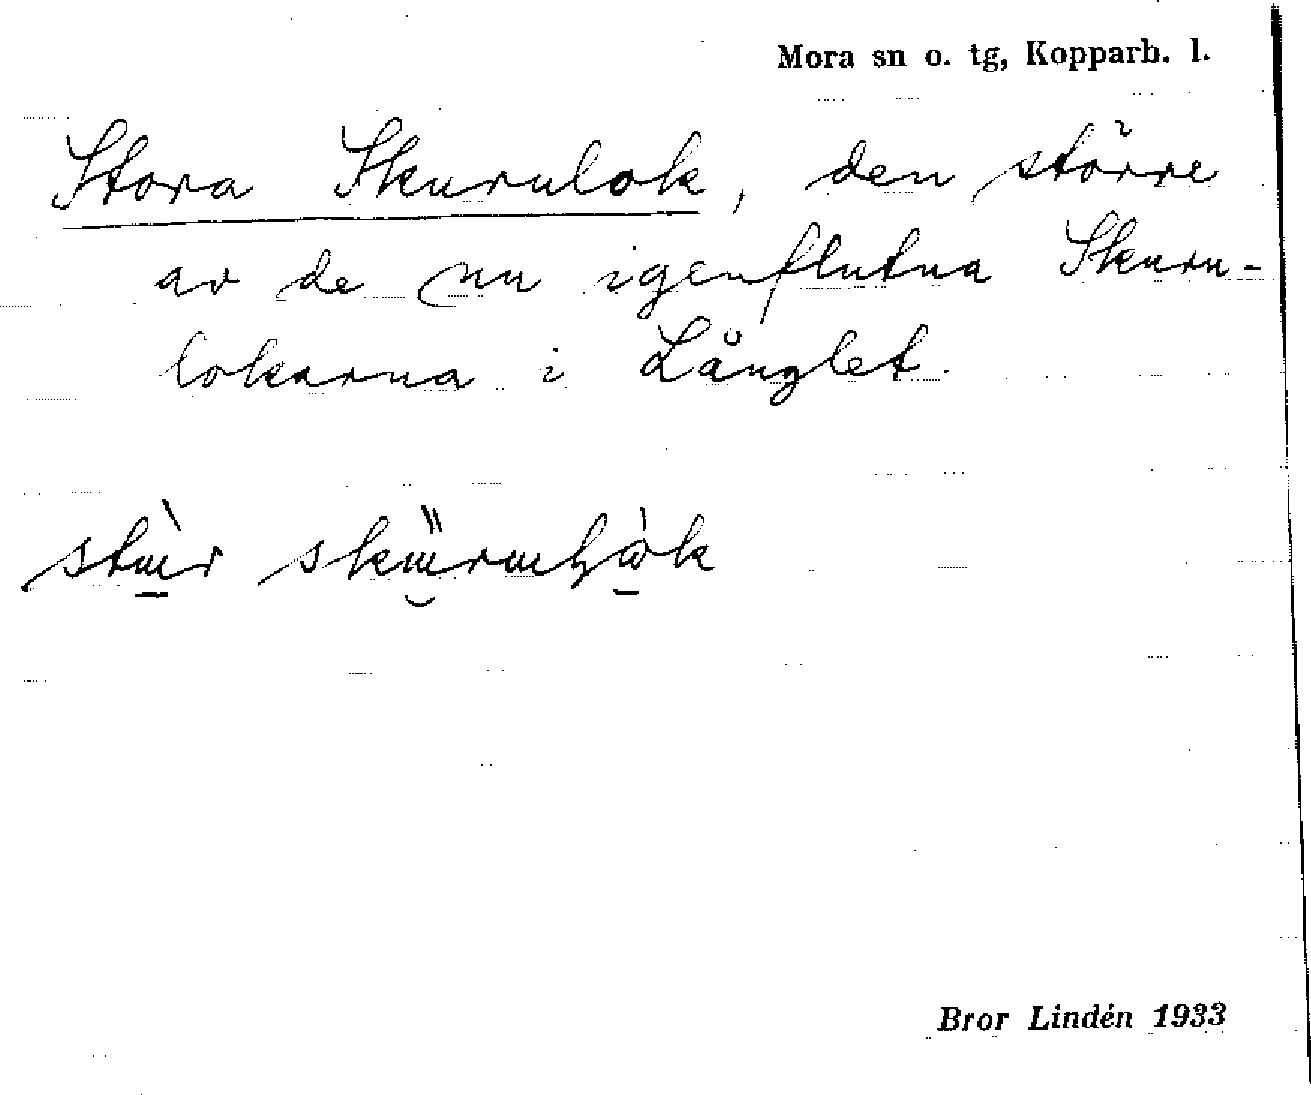 Mora sn o. tg, Kopparb. l.
Stora Skurulok, den större
av de nu igenflutna Skuru-
lokarna i Långlet.
Bror Lindén 1933